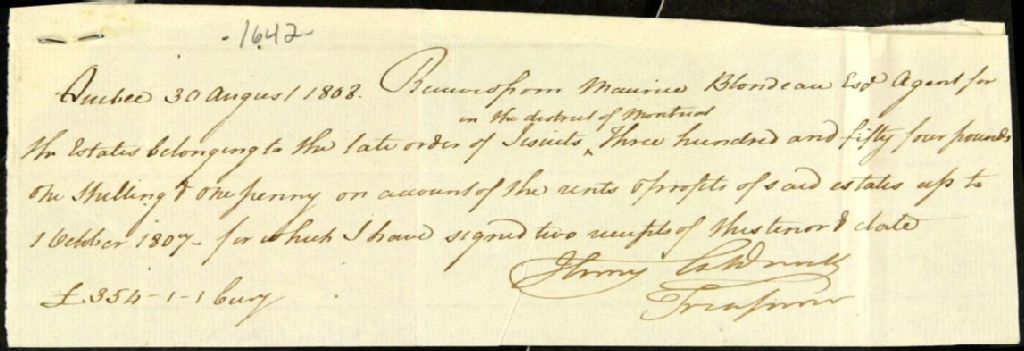 1642
Quebec 30 August 1808. Received from Maurice Blondeau Esqr Agent for
in the district of Montreal
the Estates belonging to the late order of Jesuits ^ three hundred and fifty four pounds
one shilling & one penny on account of the rents & profits of said estates up to
1 October 1807 - for which I have signed two receipts of this tenor & date
Henry Caldwell
£354-1-1 Curcy
Treasurer